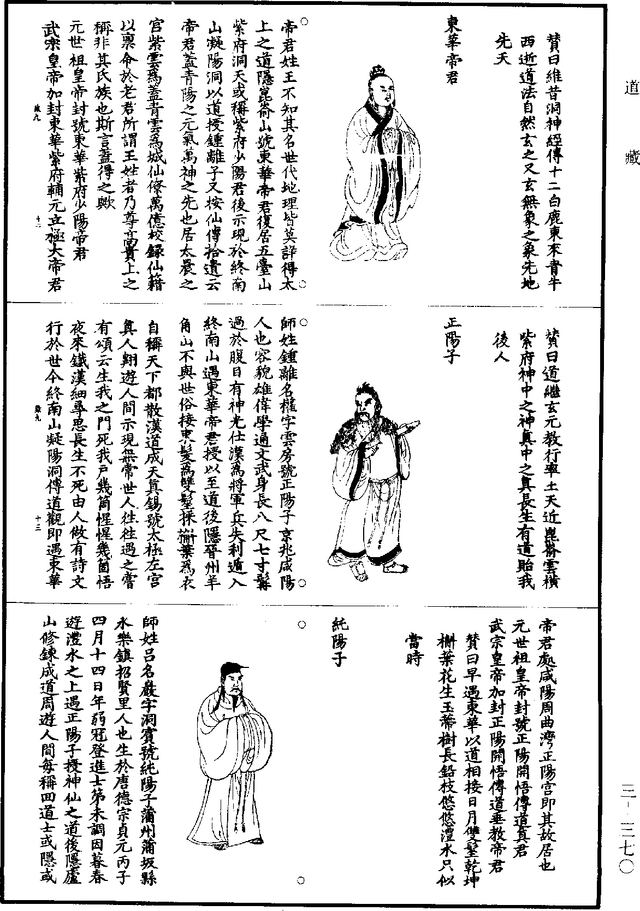 道藏
贊曰維昔洞神經傳十二白鹿東來青牛
西逝道法自然玄之又玄無象之象先地
先天
東華帝君
帝君姓王不知其名世代地理皆莫詳得太
上之道隱崑崙山號東華帝君復居五臺山
紫府洞天或稱紫府少陽君後示現於終南
山凝陽洞以道授鍾離子又按仙傳拾遺云
帝君蓋青陽之元氣萬神之先也居太晨之
宮紫雲為蓋青雲為城仙僚萬億校錄仙籍
以稟命於老君所謂王姓者乃尊高貴上之
稱非其氏族也斯言蓋得之歟
元世祖皇帝封號東華紫府少陽帝君
武宗皇帝加封東華紫府輔元立極大帝君
贊曰道繼玄元教行率土天近崑崙雲橫
紫府神中之神真中之真長生有道貽我
後人
正陽子
師姓鍾離名權字雲房號正陽子京兆咸陽
人也容貌雄偉學通文武身長八尺七寸髯
過於腹目有神光仕漢為將軍兵失利遁入
終南山遇東華帝君授以至道後隱晉州羊
角山不與世俗接束髮為雙髻採槲葉為衣
自稱天下都散漢道成天真錫號太極左宮
真人翱遊人間示現無常世人往往遇之嘗
有頌云生我之門死我戶幾箇惺惺幾箇悟
夜來鐵漢細尋思長生不死由人做有詩文
行於世今終南山凝陽洞傳道觀即遇東華
帝君處咸陽周曲灣正陽宮即其故居也
元世祖皇帝封號正陽開悟傳道真君
武宗皇帝加封正陽開悟傳道垂教帝君
贊曰早遇東華以道相接日月雙髻乾坤
槲葉花生玉蒂樹長鉛枝悠悠澧水只似
當時
純陽子
師姓呂名巖字洞賓號純陽子蒲州蒲坂縣
永樂鎮招賢里人也生於唐德宗貞元丙子
四月十四日年弱冠登進士第未調因暮春
遊澧水之上遇正陽子授神仙之道後隱廬
山修鍊成道周遊人間每稱回道士或隱或
三-三七〇